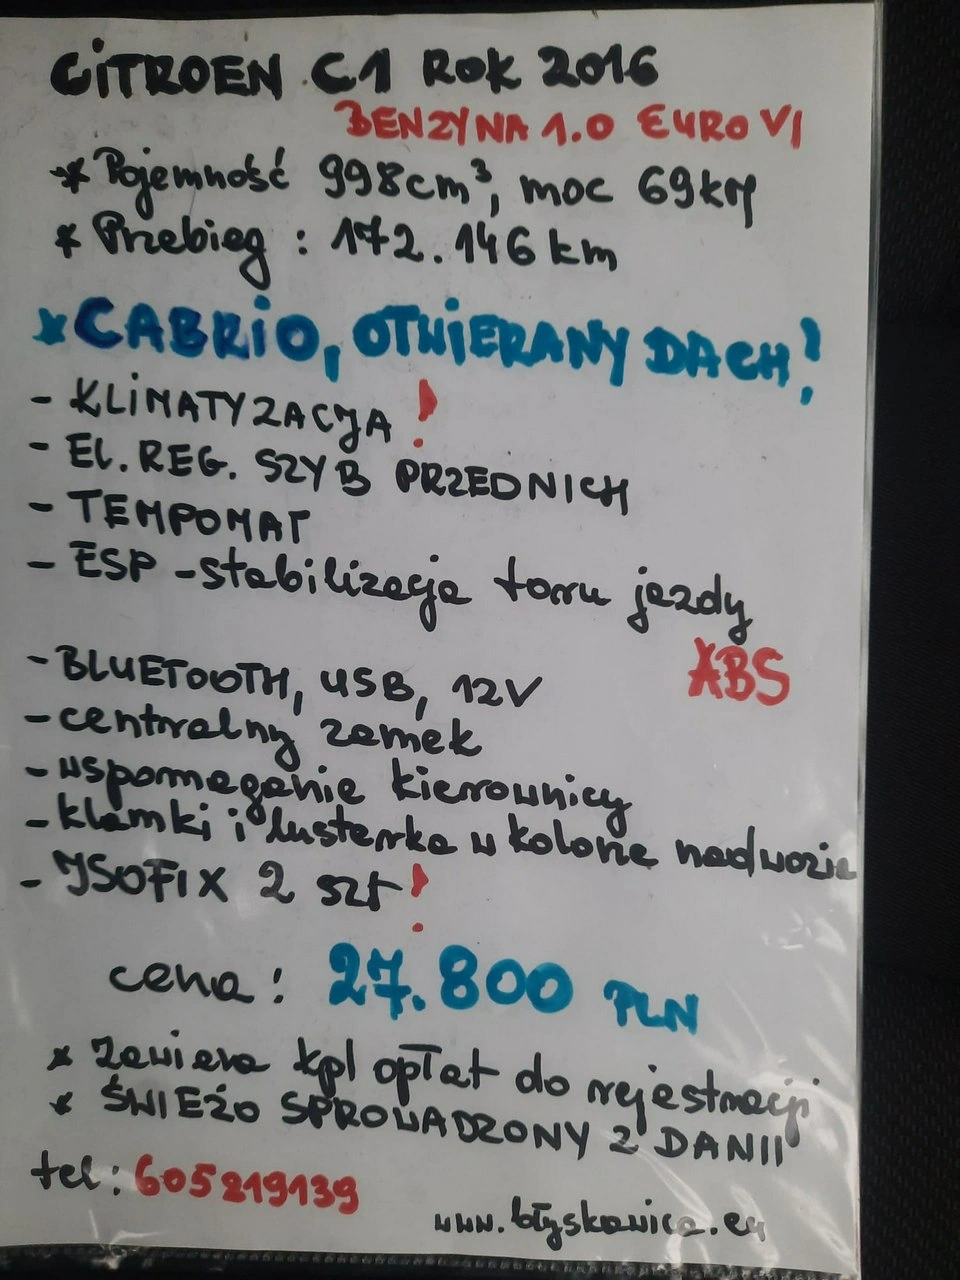 CiTROEN C1 ROK 2016
BENZYNA 1.0 EURO VI
* Pojemność 998cm³, moc 69kM
* Przebieg : 172.146 km
* CABRiO, OTWiERANY DACH!
- KLiMATYZACJA !
- EL. REG. SZYB PRZEDNICH
- TEMPOMAT
- ESP - stabilizacja toru jazdy
ABS
- BLUETOOTH, USB, 12V
- centralny zamek
- wspomaganie kierownicy
- klamki i lusterka w kolorze nadwozia
- ISOFIX 2 szt !
cena : 27.800 PLN
* Zawiera kpl opłat do rejestracji
* ŚWIEŻO SPROWADZONY Z DANII
tel : 605219139
www.błyskawica.eu